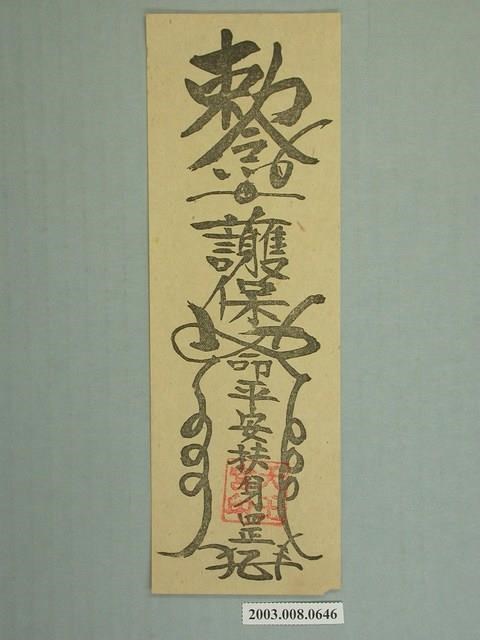 敕令
護保命平安扶身罡
2003.008.0646